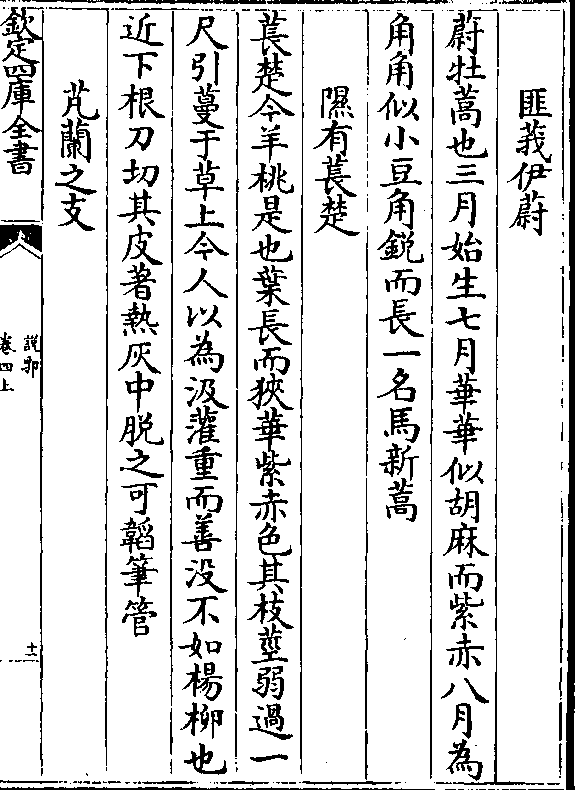 匪莪伊蔚
蔚牡蒿也三月始生七月華華似胡麻而紫赤八月為
角角似小豆角鋭而長一名馬新蒿
隰有萇楚
萇楚今羊桃是也葉長而狹華紫赤色其枝莖弱過一
尺引蔓于草上今人以為汲灌重而善没不如楊柳也
近下根刀切其皮著熱灰中脱之可韜筆管
芃蘭之支
欽定四庫全書
說郛
卷四上
十二